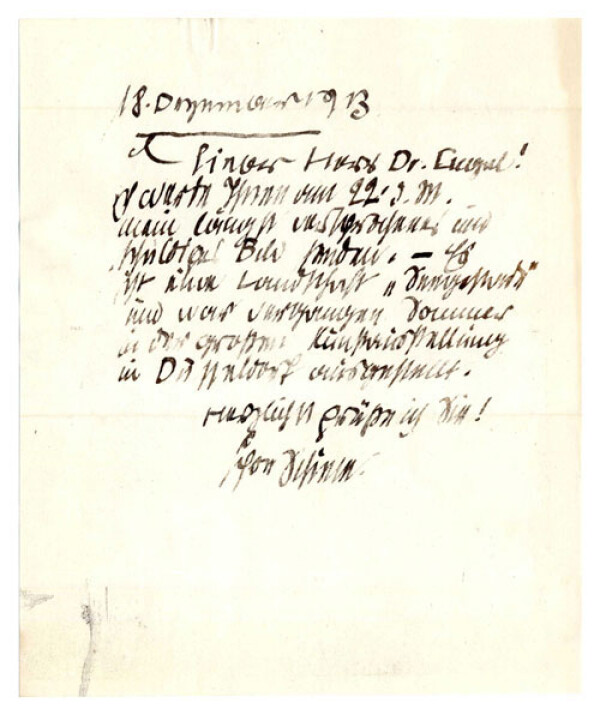 18. Dezember 1913
Lieber Herr Dr. Engel!
Ich werde Ihnen am 22. d. M.
mein längst versprochenes und
schuldiges Bild senden. – Es
ist eine Landschaft
und war vergangen Sommer
in der großen Kunstausstellung
in Düsseldorf ausgestellt.
Herzlichst grüße ich Sie!